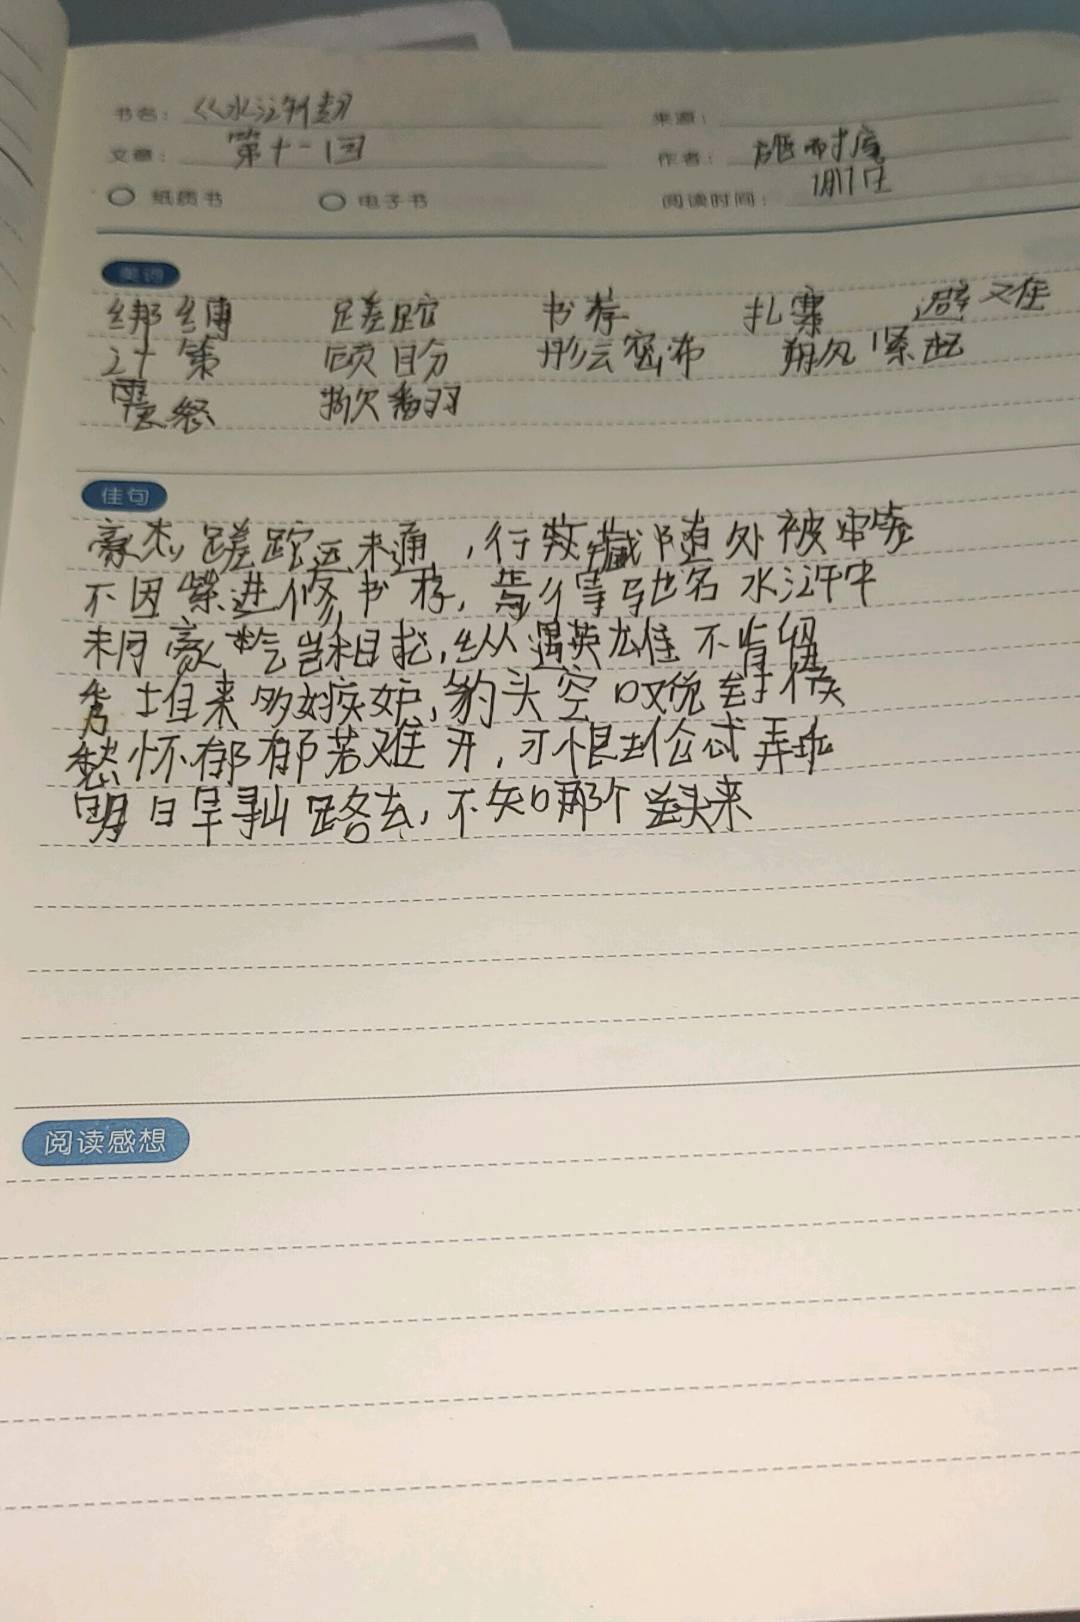 书名： 《水浒传》
来源：
文章： 第十一回
作者： 施耐庵
纸质书 电子书
阅读时间：
美词
绑缚 蹉跎 书荐 扎寨 避难
计策 顾盼 彤云密布 朔风紧起
震怒 掀翻
佳句
豪杰蹉跎运未通，行藏随处被牢笼
不因柴进修书荐，焉得马驰名水浒中
未同豪气岂相求，纵遇英雄不肯留
秀士自来多嫉妒，豹头空叹觅封侯
愁怀郁郁苦难开，可恨王伦忒弄乖
明日早寻山路去，不知那个送头来
阅读感想